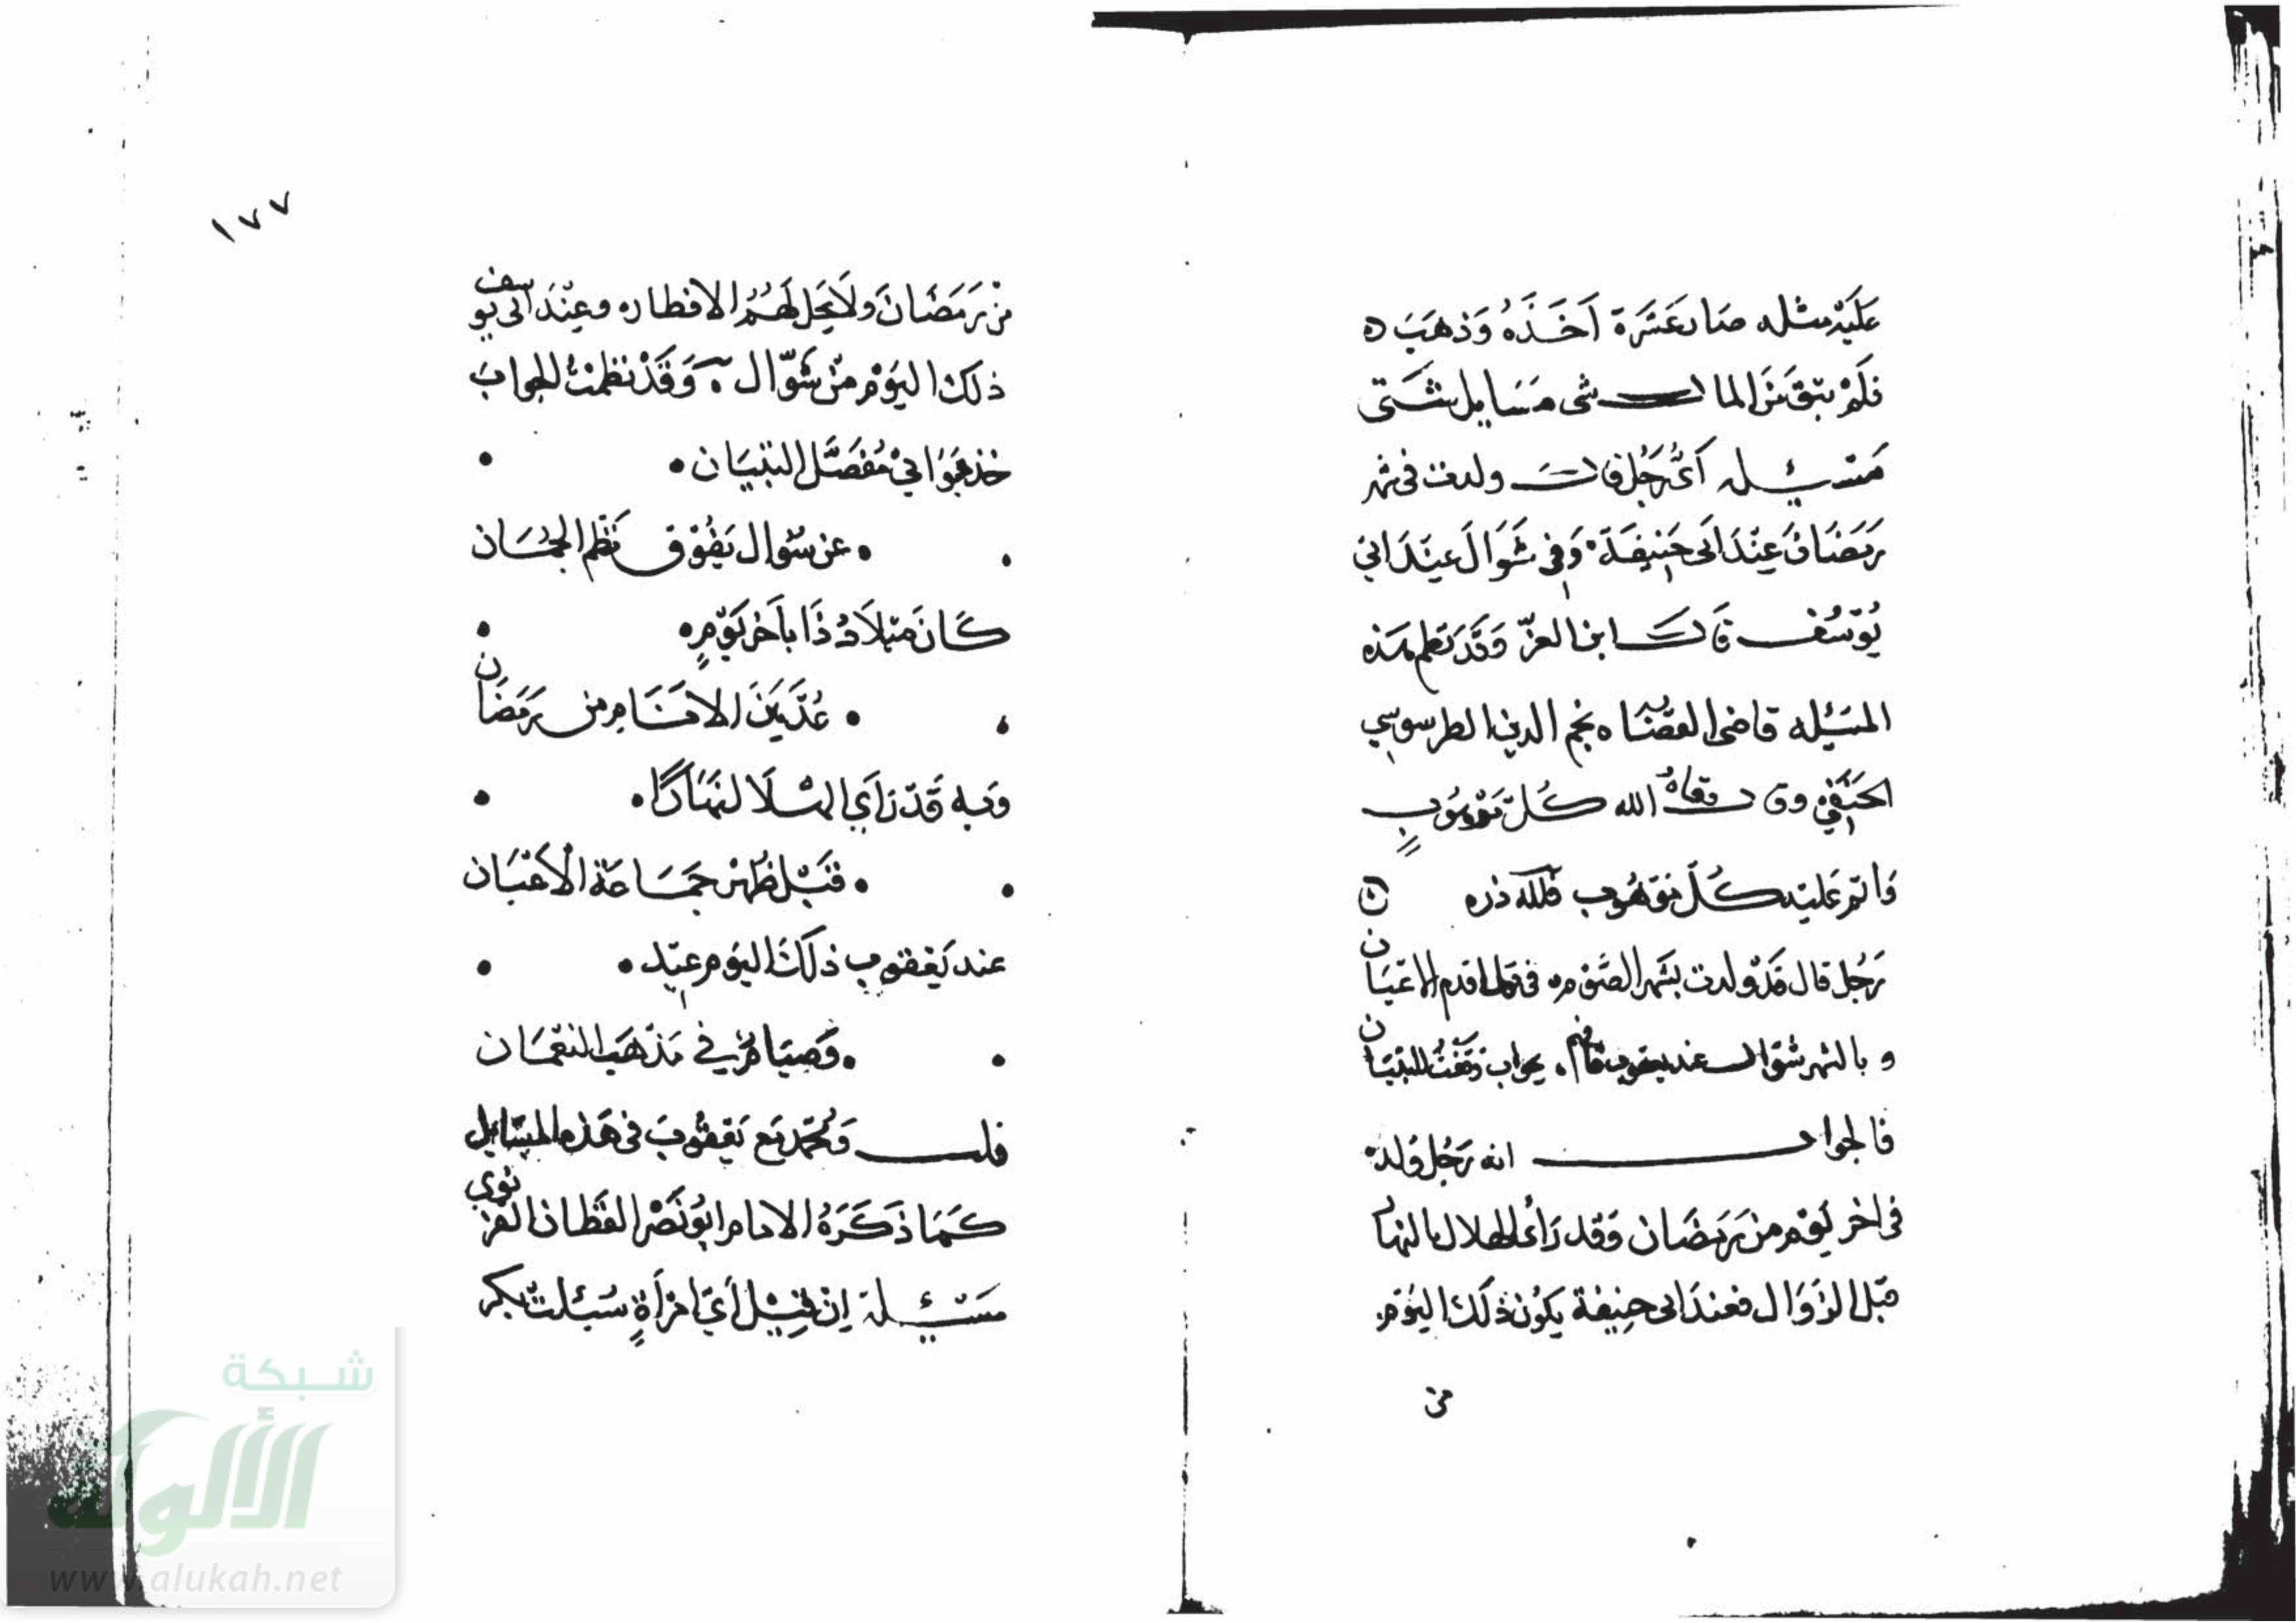 عَلَيْهِ مثله صار عَشَرَة اَخَذَهُ وَذهَبَ ه
فَلَمْ يَبْقَ مَنَ المال شى مَسَايل شَتى
مَسْئِيله اَىُّ رَجُل قال ولدت فى شهر
رَمَضَانَ عِنْدَ ابَى حَنِيفَة وَفِى شَوَّالَ عِنْدَ ابى
يُوسُف قَال ابن العزّ وَقَدَ نظم هَذه
المسَئِله قاضى القضَاه نجم الدين الطرسوسي
الحَنَفِي وقاهُ الله كُلّ
وَاتم عَليه كُلّ مَوْهُوب فَللّه دره
رَجُل قال قَدْ ولدت بشَهر الصَّوم فى اقدم الاعْيَان
و بالشهر شوّال عند يعقوب فافهم بجواب للتبيَان
فالجواب انه رَجُل وُلد
فى اخر يَوْم من رَمَضَان وَقد رَأى الهلال بالنهار
قبل الزَوَال فعند ابى حنيفة يكوُن ذلكَ اليَوْم
من
١٧٧
منْ رَمَضَانَ ولَا يَحِل لَهُمُ الافطار وعِنْدَ ابى يوسف
ذلكَ اليَوْم مِنْ شَوَّال وَقَدْ نظمْتُ الجوابَ
خذ جَوَابي مُفصَّل التبيَان
عن سُؤال يَفُوْق نَظم الجمَان
كَانَ مِيلَادُ ذَا بآخر يَوْمٍ
عُدَّ بَيْنَ الانَام من رَمَضَان
وَبه قَدْ رَأَي الهلَال نهَارًا
قبْل ظهْر جَمَاعَة الاعْيَان
عند يَعْقوب ذلكَ اليَوم عيْد
وَصِيَامٌ في مَذْهَب النعْمَان
قلت وَمُحَمّد مَع يَعْقُوبَ فى هَذه المسَايل
كَمَا ذَكَرَهُ الامام ابُو نَصْر القَطان الغزنوي
مَسْئِلة اِن قِيْل اَيّ امْرَأةٍ سُئلتْ بكر
شبكة
الألوكة
www.alukah.net